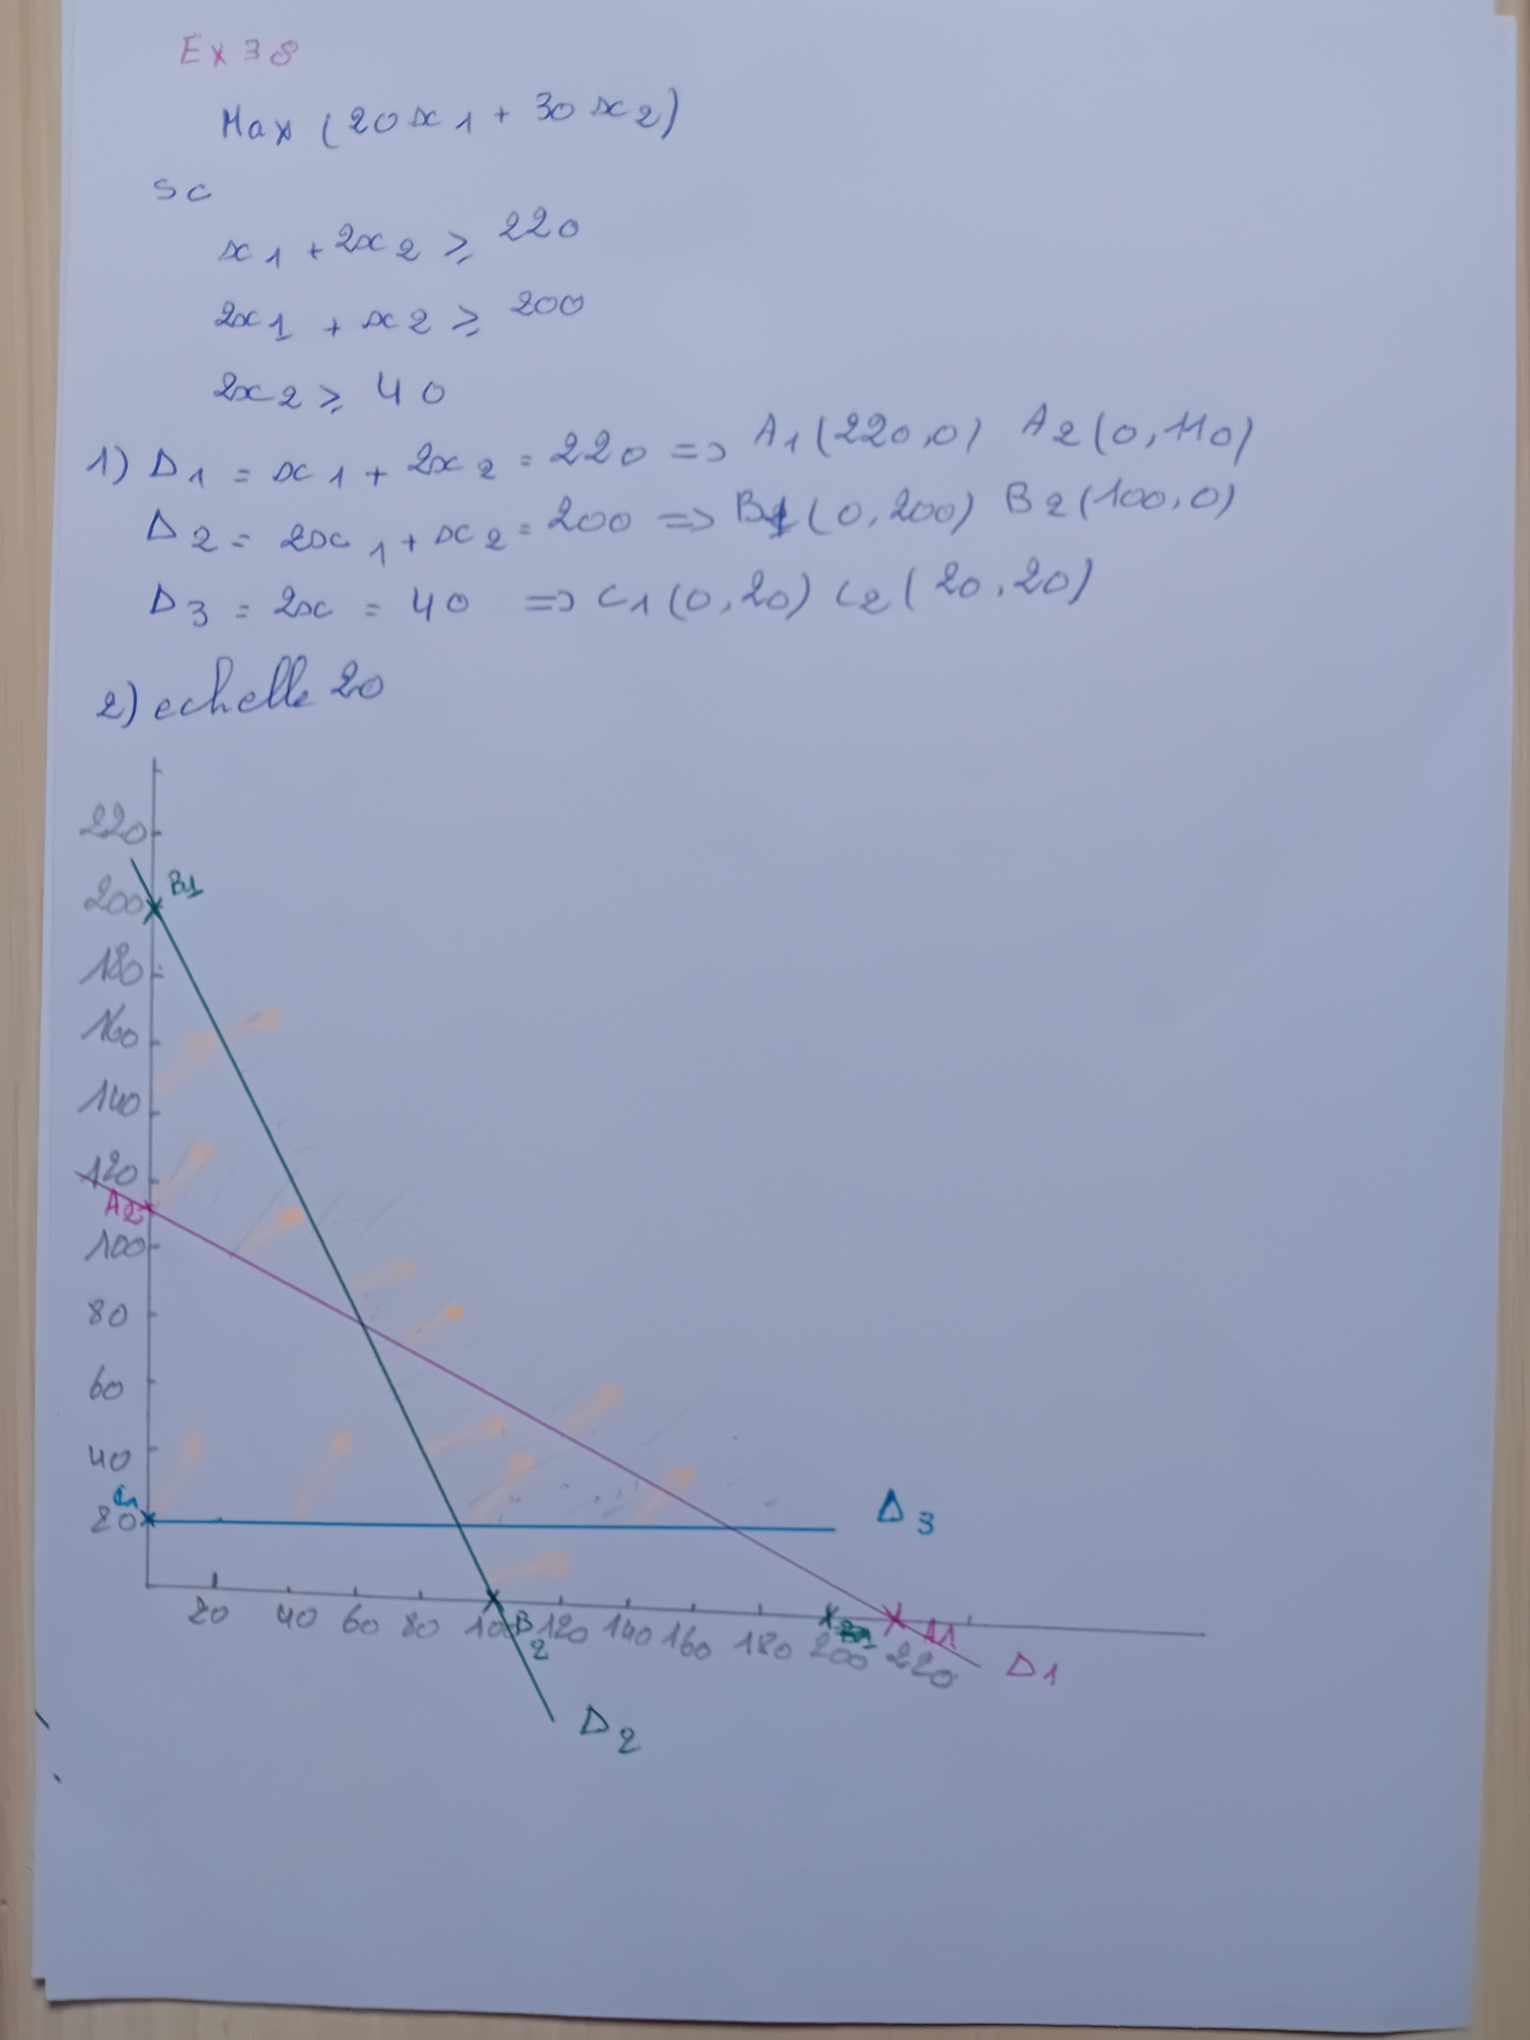 Ex 38
Max (20x1 + 30x2)
sc
x1 + 2x2 ≥ 220
2x1 + x2 ≥ 200
2x2 ≥ 40
1) Δ1 = x1 + 2x2 = 220 => A1(220,0) A2(0,110)
Δ2 = 2x1 + x2 = 200 => B1(0,200) B2(100,0)
Δ3 = 2x = 40 => C1(0,20) C2(20,20)
2) echelle 20
220
200 B1
180
160
140
120
A2
100
80
60
40
C1
20
Δ3
20 40 60 80 100 B2 120 140 160 180 200 220 A1
Δ1
Δ2